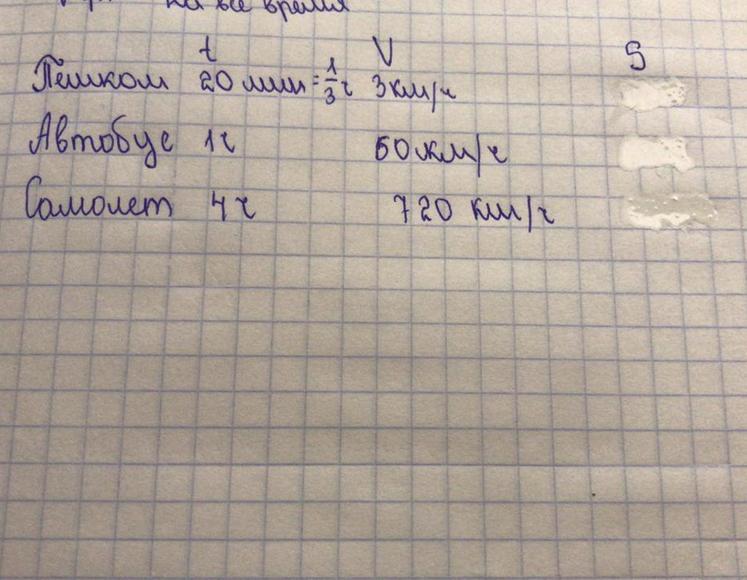 на все время
t V S
Пешком 20 мин = 1/3 ч 3 км/ч
Автобус 1ч 60 км/ч
Самолет 4 ч 720 км/ч